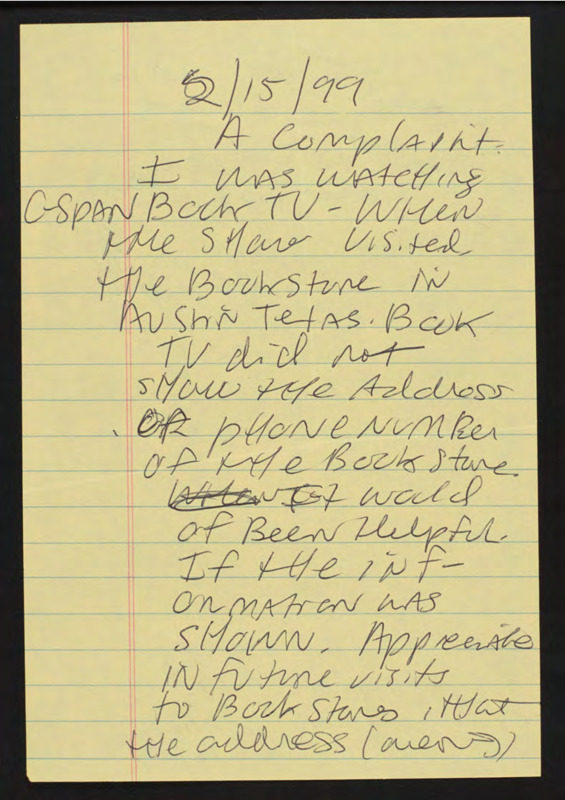 2/15/99
A Complaint.
I was watching
C-SPAN Book TV - When
the show visited
the Bookstore in
Austin Texas. Book
TV did not
show the Address
OR phone number
of the Book Store.
It would
of Been Helpful.
If the inf-
ormation was
shown. Appreciate
in future visits
to Book Stores, that
the address (over)